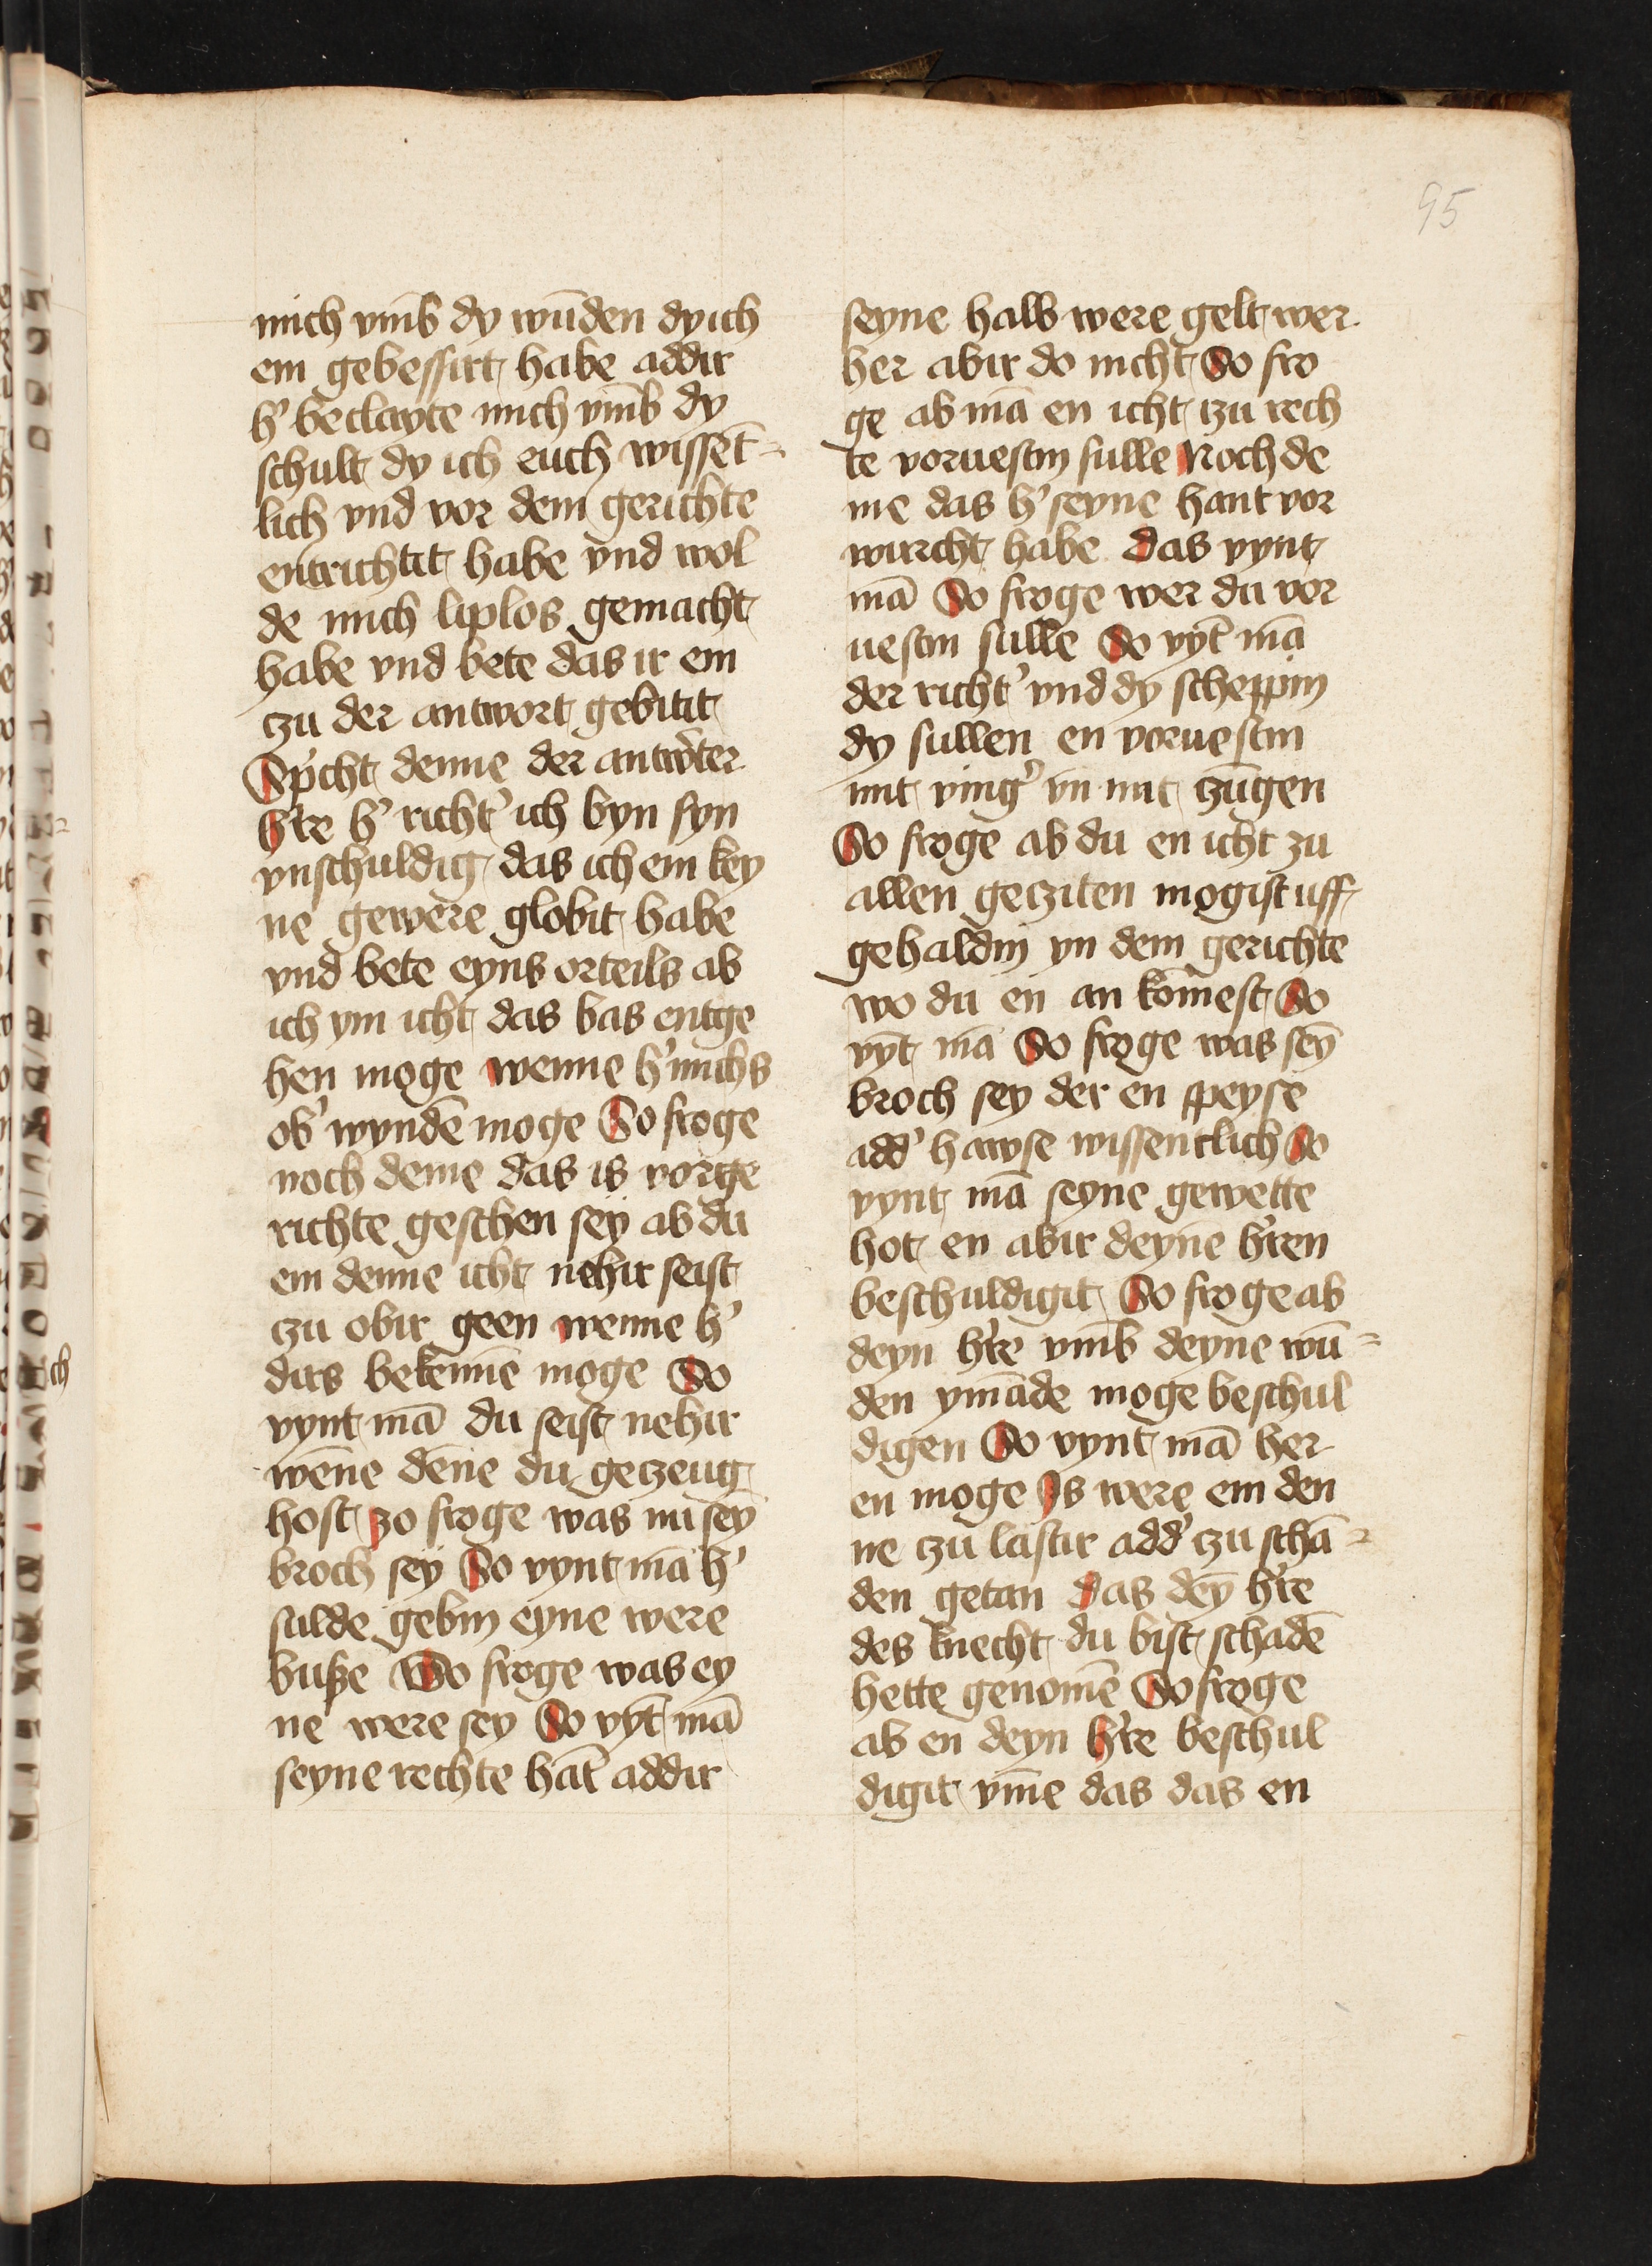 95
mich vm̄b dy wūden dy ich
em gebessirt habe addir
h' beclayte mich vm̄b dy
schult dy ich euch wissēt=
lich vnd vor dem gerichte
entrichtit habe vnd wol
de mich liplos gemacht
habe vnd bete das ir em
czu der antwort gebitit
Sp'cht denne der antw'ter
h're h' richt' ich byn syn
vnschuldig das ich em key
ne gewere globit habe
vnd bete eyns orteils ab
ich ym icht das bas entge
hen moge wenne h' michs
ob' wyndē moge So froge
noch deme das is vorge
richte geschen sey ab du
em denne icht nehir seist
czu obir geen wenne h'
dirs bekennē moge So
vynt mā du seist nehir
wēne dēne du geczeug
host zo froge was nu sey
broch sey So vynt mā h'
sulde gebin eyne were
busze So froge was ey
ne were sey So vȳt mā
seyne rechte hāt addir
seyne halb were gelt wer
her abir do nicht So fro
ge ab mā en icht czu rech
te voruestin sulle Noch de
me das h' seyne hant vor
wurcht habe das vynt
mā So froge wer du vor
uestin sulle So vȳt mā
der richt' vnd dy scheppin
dy sullen en voruestin
mit ving' vn̄ mit czūgen
So froge ab du en icht zu
allen gecziten mogist uff
gehaldin yn dem gerichte
wo du en an kom̄est So
vȳt mā So froge was sey
broch sey der en speyse
add' hawse wissentlich So
vynt mā seyne gewette
hot en abir deynē h'ren
beschuldigit So froge ab
deyn h're vm̄b deyne wū=
den ymāde moge beschul
digen So vynt mā her
en moge Is were em den
ne czu lastir add' czu schā=
den getan das dey h're
des knecht du bist schadē
hette genomē So froge
ab en deyn h're beschul
digit vm̄e das das en